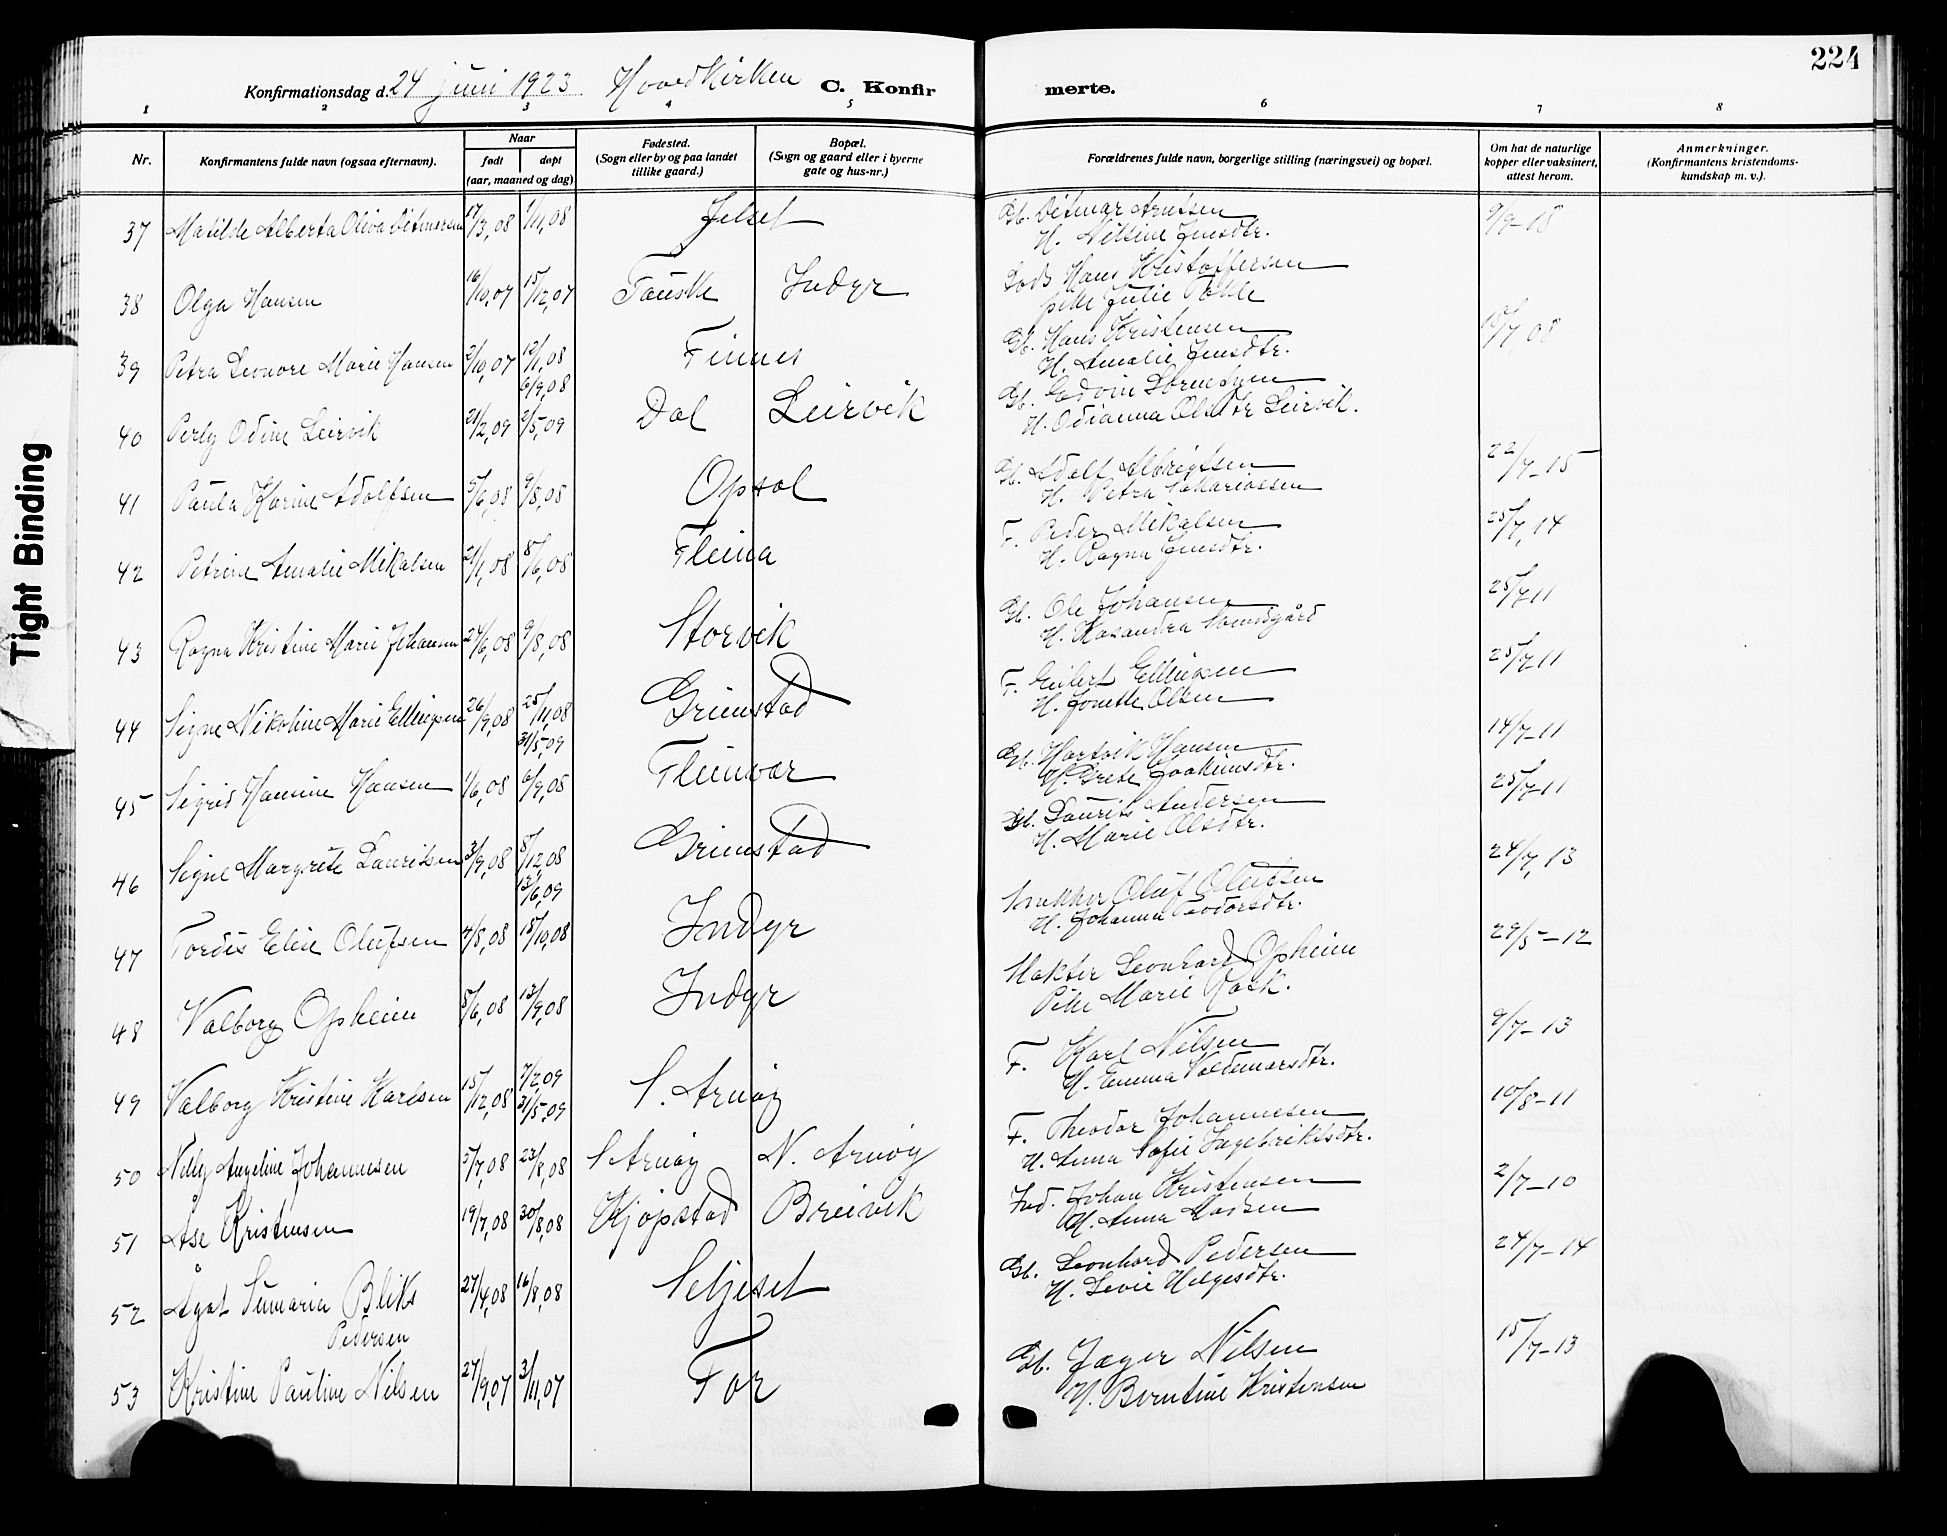 224
Konfirmationsdag d. 24 juni 1923. Hovedkirken C. Konfirmerte.
1 2 3 4 5 6 7 8
Nr. Konfirmantens fulde navn (ogsaa efternavn). Naar født døpt (aar, maaned og dag) Fødested. (Sogn eller by og paa landet tillike gaard.) Bopæl. (Sogn og gaard eller i byerne gate og hus-nr.) Forældrenes fulde navn, borgerlige stilling (næringsvei) og bopæl. Om hat de naturlige kopper eller vaksinert, attest herom. Anmerkninger. (Konfirmantens kristendoms-kundskap m. v.).
37 Matilde Alberta Oliva Ditmarsen 17/3,08 1/11,08 Jelset Gb. Ditmar Arntsen 9/9-18
H. Nilsine Jensdtr.
38 Olga Hansen 16/10,07 15/12,07 Fauske Indyr Lods Hans Kristoffersen
pike Julie
39 Petra Leonore Marie Hansen 2/10,07 12/1,08 Finnes Gb. Hans Kristensen 15/7,08
6/9,08 H. Amalie Jensdtr.
40 Perly Odine Leirvik 21/2,09 2/5,09 Dal Leirvik Gb. Edvin Sørensen
H. Odianna Olsdtr Leirvik.
41 Paula Karine Adolfsen 5/6,08 9/8,08 Opsal Gb. Adolf Albrigtsen 22/7-15
H. Petra Sakariassen
42 Petrine Amalie Mikalsen 21/1,08 8/6,08 Fleina F. Peder Mikalsen 25/7,14
H. Ragna Jensdtr.
43 Ragna Kristine Marie Johansen 24/6,08 9/8,08 Storvik Gb. Ole Johansen 25/7-11
H. Kasandra
44 Signe Nikoline Marie Ellingsen 26/9,08 25/11,08 Grimstad F. Eilert Ellingsen 25/7-11
31/5,09 H. Jonette Olsen
45 Sigrid Hansine Hansen 1/6,08 6/9,08 Fleinvær Gb. Hartvik Hansen 14/7-11
H. Grete Joakimsdtr.
46 Signe Margrete Lauritsen 3/9,08 8/12,08 Grimstad Gb. Laurits Andersen 25/7-11
13/6,09 H. Marie Olsdtr.
47 Tordis Elise Olufsen 4/8,08 18/10,08 Indyr Snekker Oluf Olufsen 24/7,13
H. Johanna Teodorsdtr.
48 Valborg Opheim 8/6,08 13/9,08 Indyr Vakter Leonhard Opheim 29/5-12
Pike Marie Rask.
49 Valborg Kristine Karlsen 15/12,08 7/2,09 S. Arnøy F. Karl Nilsen 9/7-13
31/5,09 H. Emma Valdemarsdtr.
50 Nelly Angeline Johannesen 5/7,08 23/8,08 S Arnøy N. Arnøy F. Theodor Johannesen 10/8-11
H. Anna Sofie Ingebriktsdtr.
51 Åse Kristensen 19/7,08 30/8,08 Kjøpstad Breivik Ind. Johan Kristensen 2/7-10
H. Anna Larsen
52 Ågot Sumaria Bliks 27/4,08 16/8,08 Seljeset Gb. Leonhard Pedersen 24/7-14
Pedersen H. Levie Helgesdtr.
53 Kristine Pauline Nilsen 27/9,07 3/11,07 Før Gb. Jæger Nilsen 15/7-13
H. Berntine Kristensen
Tight Binding